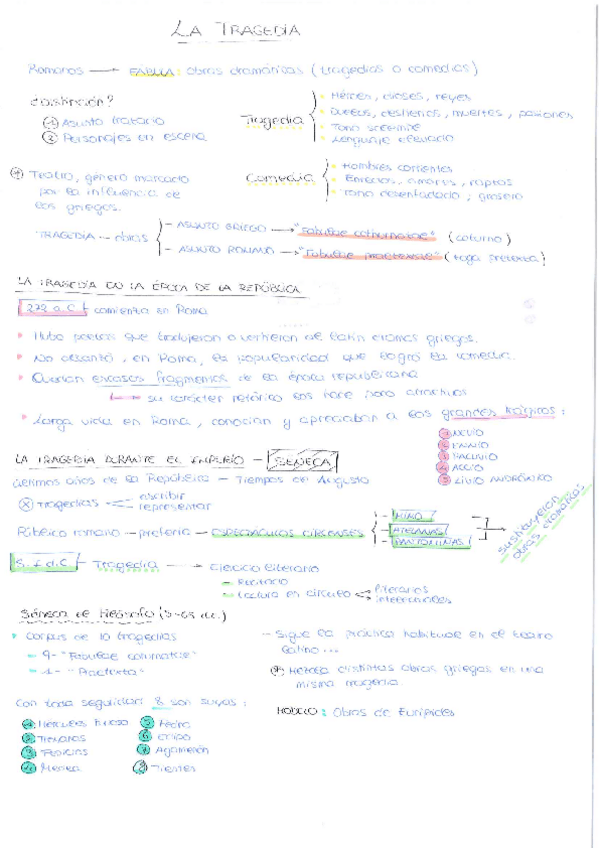 LA TRAGEDIA
Romanos → FABULA: obras dramáticas (tragedias o comedias)
¿distinción?
① Asunto tratado
② Personajes en escena
Tragedia
• Héroes, dioses, reyes
• Duelos, destierros, muertes, pasiones
• Tono sublime
• Lenguaje elevado
* Teatro, género marcado
por la influencia de
los griegos.
Comedia
• Hombres corrientes
• Enredos, amores, raptos
• Tono desenfadado, grosero
TRAGEDIA — obras
- ASUNTO GRIEGO → "Fabulae cothurnatae" (coturno)
- ASUNTO ROMANO → "Fabulae praetextae" (toga pretexta)
LA TRAGEDIA EN LA ÉPOCA DE LA REPÚBLICA
comienza en Roma
• Hubo poetas que tradujeron o vertieron al latín dramas griegos.
• No obstante, en Roma, la popularidad que logró la comedia.
• Quedan escasos fragmentos de la época republicana
→ su carácter retórico los hace poco atractivos
• Larga vida en Roma, conocían y apreciaban a los grandes trágicos:
① NEVIO
② ENNIO
③ PACUVIO
④ ACCIO
⑤ LIVIO ANDRÓNICO
LA TRAGEDIA DURANTE EL IMPERIO - SÉNECA
Últimos años de la República - Tiempos de Augusto
Tragedias
escribir
representar
Público romano - prefería - ESPECTÁCULOS CIRCENSES
- MIMO
- ATELANAS
- PANTOMIMAS
sustituyeron
obras dramáticas
S. I d.C - Tragedia → Ejercicio literario
- Recitado
- Lectura en círculo
literarios
intelectuales
Séneca el Filósofo
• Corpus de 10 tragedias
- 9 - "Fabulae cothurnatae"
- 1 - "Praetexta"
- Sigue la práctica habitual en el teatro
latino...
* Mezcla distintas obras griegas en una
misma tragedia.
Con toda seguridad 8 son suyas:
MODELO: Obras de Eurípides
① Hércules Furioso
② Troyanas
③ Fenicias
④ Medea
⑤ Fedra
⑥ Edipo
⑦ Agamenón
⑧ Tiestes